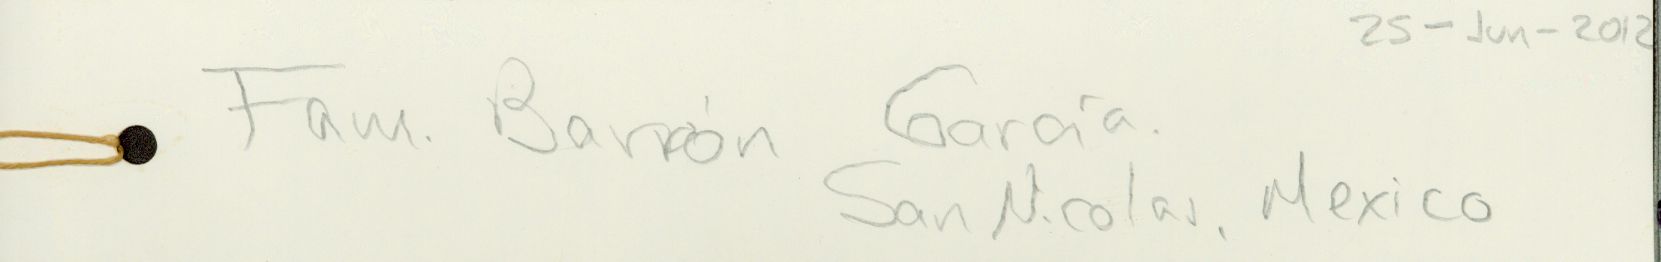 25-Jun-2012
Fam. Barrón García.
San Nicolas, Mexico